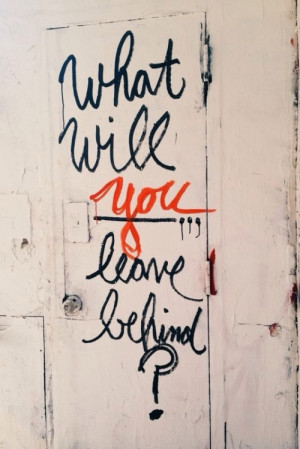 What
will
you,,,
leave
behind
?